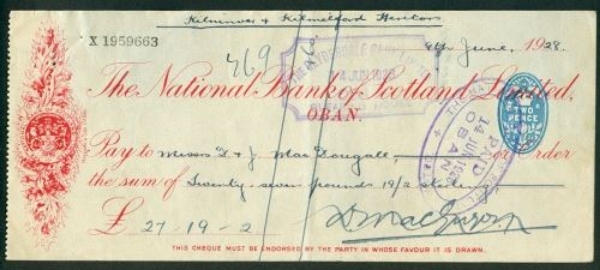 Kilninver & Kilmelford Heritors
X 1959663
469
9th June, 1928.
The National Bank of Scotland Limited,
OBAN.
TWO PENCE
PAID
14 JUN 1928
OBAN
Pay to Messrs D. & J. MacDougall, or Order
the sum of Twenty-seven pounds 19/2 sterling
£ 27-19-2
D MacGregor
THIS CHEQUE MUST BE ENDORSED BY THE PARTY IN WHOSE FAVOUR IT IS DRAWN.